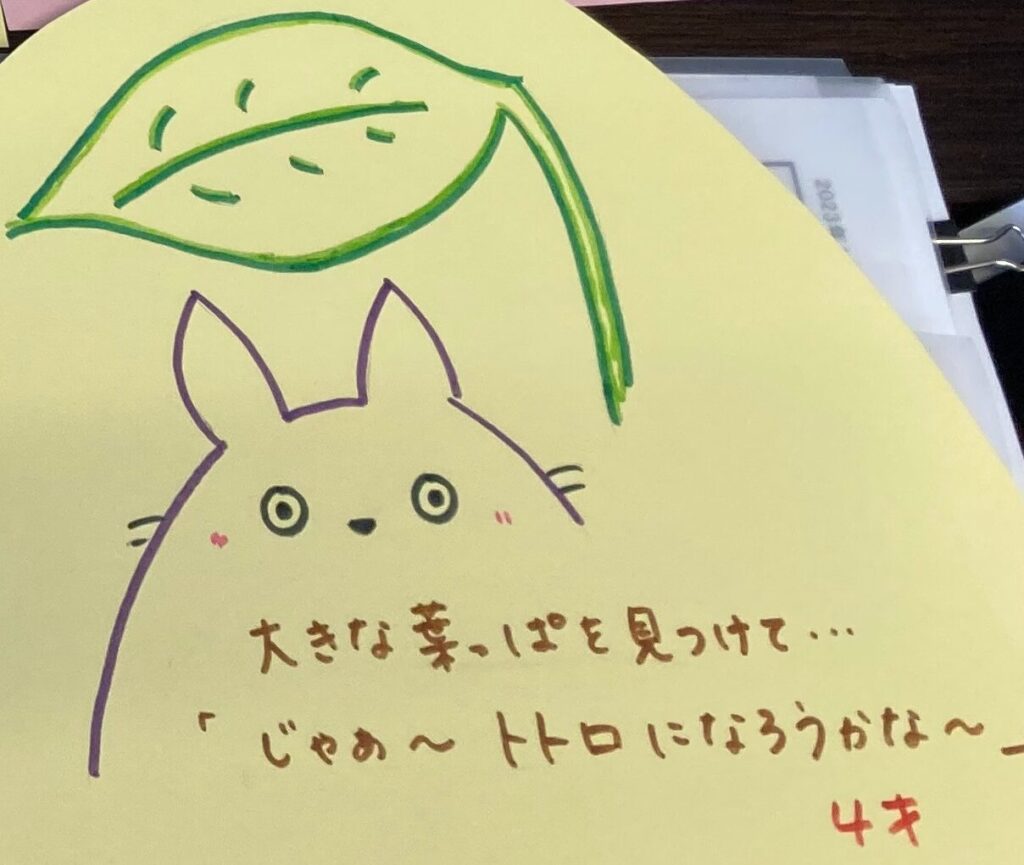 大きな葉っぱを見つけて…
「じゃあ〜 トトロになろうかな〜」
4才
2023